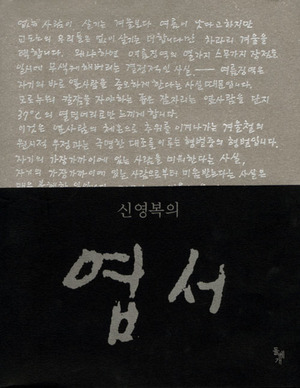 없는 사람이 살기는 겨울보다 여름이 낫다고하지만
교도소의 우리들은 없이 살기는 더합니다만 차라리 겨울을
택합니다. 왜냐하면 여름징역의 열가지 스무가지 장점을
일시에 무색케해버리는 결정적인 사실 —— 여름징역은
자기의 바로 옆사람을 증오하게 한다는 사실 때문입니다.
모로누워 칼잠을 자야하는 좁은 잠자리는 옆사람을 단지
37°C의 열덩어리로만 느끼게 합니다.
이것은 옆사람의 체온으로 추위를 이겨나가는 겨울철의
원시적 우정과는 극명한 대조를 이루는 형벌중의 형벌입니다.
자기의 가장가까이에 있는 사람을 미워한다는 사실,
자기의 가장가까이에 있는 사람으로부터 미움받는다는 사실은
신영복의
엽서
돌베개